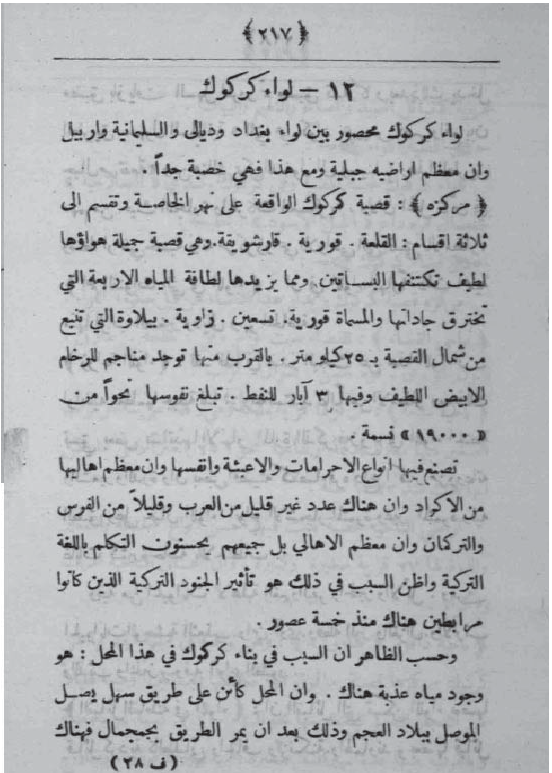 ﴿ ٢١٧ ﴾
١٢ – لواء كركوك
لواء كركوك محصور بين لواء بغداد وديالى والسليمانية واربيل
وان معظم اراضيه جبلية ومع هذا فهي خصبة جداً .
﴿ مركزه ﴾ : قصبة كركوك الواقعة على نهر الخاصة وتقسم الى
ثلاثة اقسام : القلعة . قورية . قارشويقة. وهي قصبة جميلة هواؤها
لطيف تكتنفها البساتين. ومما يزيدها لطافة المياه الاربعة التي
تخترق جاداتها والمسماة قورية. تسعين . زاوية . بيلاوة التي تنبع
من شمال القصبة بـ ٢٥ كيلو متر . بالقرب منها توجد مناجم للرخام
الابيض اللطيف وفيها ٣ آبار للنفط . تبلغ نفوسها نحواً من
« ١٩٠٠٠ » نسمة .
تصنع فيها انواع الاحرامات والاعبئة وانفسها وان معظم اهاليها
من الاكراد وان هناك عدد غير قليل من العرب وقليلاً من الفرس
والتركمان وان معظم الاهالي بل جميعهم يحسنون التكلم باللغة
التركية واظن السبب في ذلك هو تأثير الجنود التركية الذين كانوا
مرابطين هناك منذ خمسة عصور .
وحسب الظاهر ان السبب في بناء كركوك في هذا المحل : هو
وجود مياه عذبة هناك . وان المحل كأن على طريق سهل يصل
الموصل ببلاد العجم وذلك بعد ان يمر الطريق بجمجمال فهناك
( ف ٢٨ )